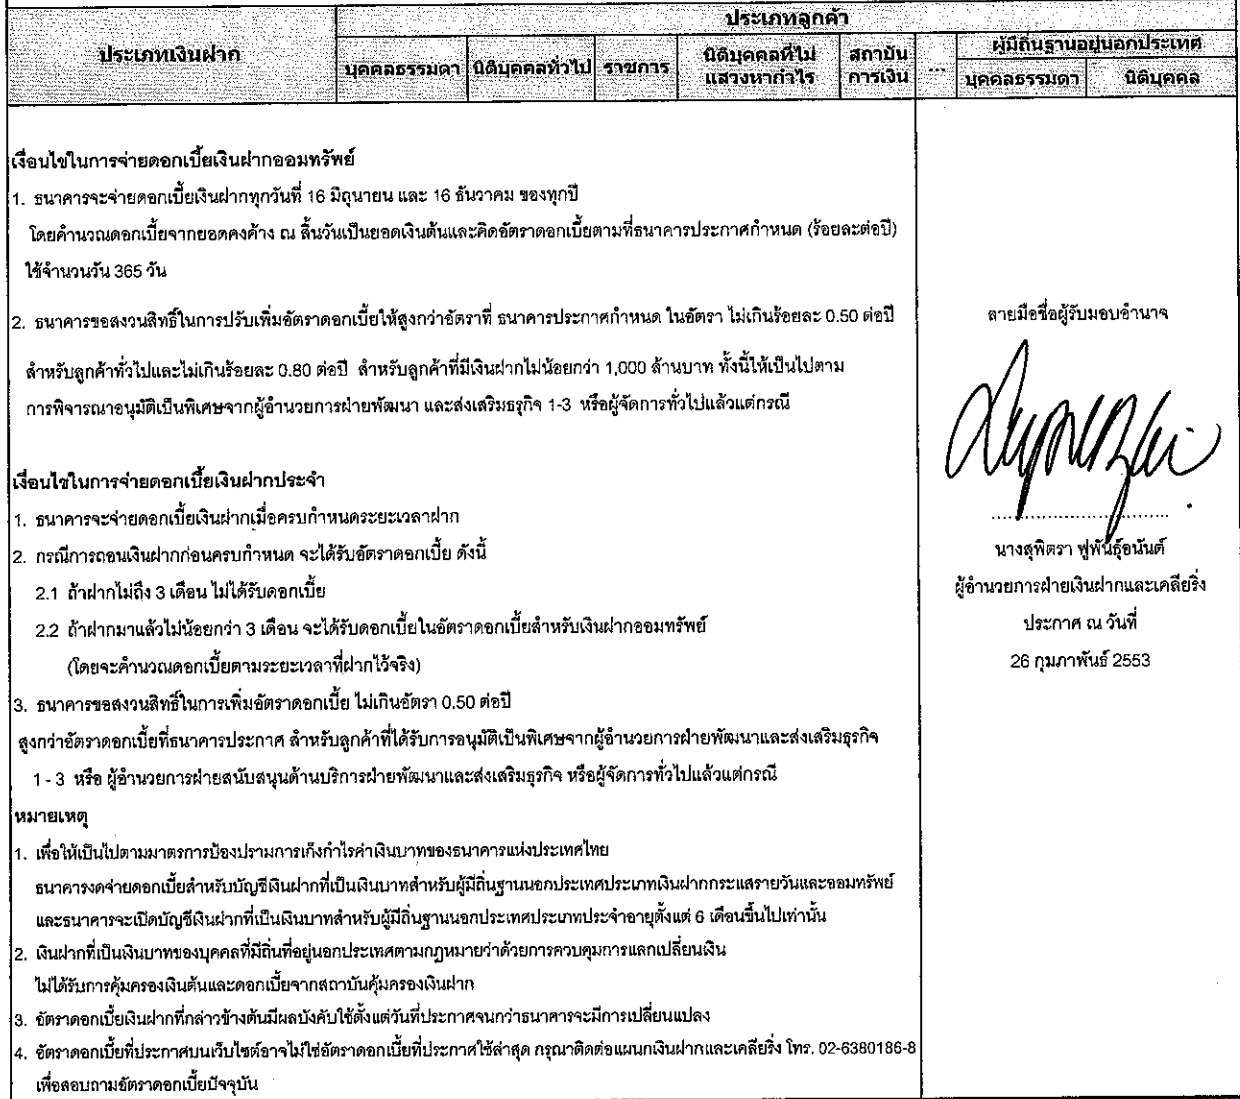 ประเภทเงินฝาก
ประเภทลูกค้า
บุคคลธรรมดา นิติบุคคลทั่วไป ราชการ นิติบุคคลที่ไม่แสวงหากำไร สถาบันการเงิน ... ผู้มีถิ่นฐานอยู่นอกประเทศ
บุคคลธรรมดา นิติบุคคล
เงื่อนไขในการจ่ายดอกเบี้ยเงินฝากออมทรัพย์
1. ธนาคารจะจ่ายดอกเบี้ยเงินฝากทุกวันที่ 16 มิถุนายน และ 16 ธันวาคม ของทุกปี
โดยคำนวณดอกเบี้ยจากยอดคงค้าง ณ สิ้นวันเป็นยอดเงินต้นและคิดอัตราดอกเบี้ยตามที่ธนาคารประกาศกำหนด (ร้อยละต่อปี)
ใช้จำนวนวัน 365 วัน
2. ธนาคารขอสงวนสิทธิ์ในการปรับเพิ่มอัตราดอกเบี้ยให้สูงกว่าอัตราที่ ธนาคารประกาศกำหนด ในอัตรา ไม่เกินร้อยละ 0.50 ต่อปี
สำหรับลูกค้าทั่วไปและไม่เกินร้อยละ 0.80 ต่อปี สำหรับลูกค้าที่มีเงินฝากไม่น้อยกว่า 1,000 ล้านบาท ทั้งนี้ให้เป็นไปตาม
การพิจารณาอนุมัติเป็นพิเศษจากผู้อำนวยการฝ่ายพัฒนา และส่งเสริมธุรกิจ 1-3 หรือผู้จัดการทั่วไปแล้วแต่กรณี
เงื่อนไขในการจ่ายดอกเบี้ยเงินฝากประจำ
1. ธนาคารจะจ่ายดอกเบี้ยเงินฝากเมื่อครบกำหนดระยะเวลาฝาก
2. กรณีการถอนเงินฝากก่อนครบกำหนด จะได้รับอัตราดอกเบี้ย ดังนี้
2.1 ถ้าฝากไม่ถึง 3 เดือน ไม่ได้รับดอกเบี้ย
2.2 ถ้าฝากมาแล้วไม่น้อยกว่า 3 เดือน จะได้รับดอกเบี้ยในอัตราดอกเบี้ยสำหรับเงินฝากออมทรัพย์
(โดยจะคำนวณดอกเบี้ยตามระยะเวลาที่ฝากไว้จริง)
3. ธนาคารขอสงวนสิทธิ์ในการเพิ่มอัตราดอกเบี้ย ไม่เกินอัตรา 0.50 ต่อปี
สูงกว่าอัตราดอกเบี้ยที่ธนาคารประกาศ สำหรับลูกค้าที่ได้รับการอนุมัติเป็นพิเศษจากผู้อำนวยการฝ่ายพัฒนาและส่งเสริมธุรกิจ
1 - 3 หรือ ผู้อำนวยการฝ่ายสนับสนุนด้านบริการฝ่ายพัฒนาและส่งเสริมธุรกิจ หรือผู้จัดการทั่วไปแล้วแต่กรณี
หมายเหตุ
1. เพื่อให้เป็นไปตามมาตรการป้องปรามการเก็งกำไรค่าเงินบาทของธนาคารแห่งประเทศไทย
ธนาคารงดจ่ายดอกเบี้ยสำหรับบัญชีเงินฝากที่เป็นเงินบาทสำหรับผู้มีถิ่นฐานนอกประเทศประเภทเงินฝากกระแสรายวันและออมทรัพย์
และธนาคารจะเปิดบัญชีเงินฝากที่เป็นเงินบาทสำหรับผู้มีถิ่นฐานนอกประเทศประเภทประจำอายุตั้งแต่ 6 เดือนขึ้นไปเท่านั้น
2. เงินฝากที่เป็นเงินบาทของบุคคลที่มีถิ่นที่อยู่นอกประเทศตามกฎหมายว่าด้วยการควบคุมการแลกเปลี่ยนเงิน
ไม่ได้รับการคุ้มครองเงินต้นและดอกเบี้ยจากสถาบันคุ้มครองเงินฝาก
3. อัตราดอกเบี้ยเงินฝากที่กล่าวข้างต้นมีผลบังคับใช้ตั้งแต่วันที่ประกาศจนกว่าธนาคารจะมีการเปลี่ยนแปลง
4. อัตราดอกเบี้ยที่ประกาศบนเว็บไซต์อาจไม่ใช่อัตราดอกเบี้ยที่ประกาศใช้ล่าสุด กรุณาติดต่อแผนกเงินฝากและเคลียริ่ง โทร. 02-6380186-8
เพื่อสอบถามอัตราดอกเบี้ยปัจจุบัน
ลายมือชื่อผู้รับมอบอำนาจ
นางสุพิตรา ฟูพันธุ์อนันต์
ผู้อำนวยการฝ่ายเงินฝากและเคลียริ่ง
ประกาศ ณ วันที่
26 กุมภาพันธ์ 2553